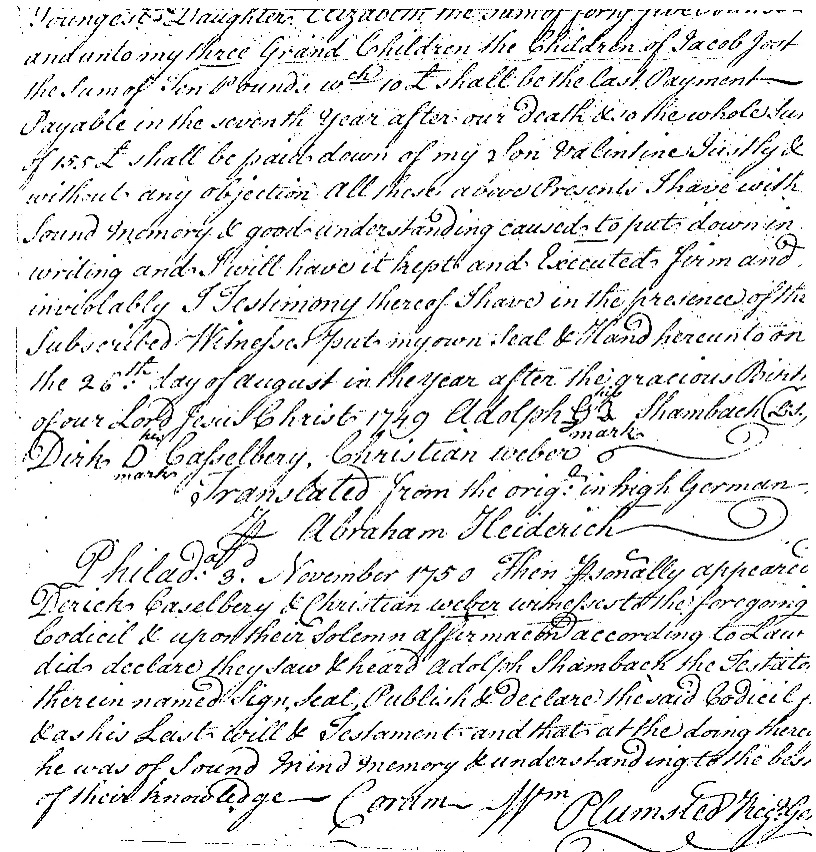 Youngest Daughter Elizabeth the Sum of forty five Pounds
and unto my three Grand Children the Children of Jacob Jost
the Sum of Ten Pounds wch 10 £ shall be the last Payment
Payable in the seventh Year after our Death & so the whole Sum
of 155 £ shall be paid down of my Son Valentine Justly &
without any objection All these above Presents I have with
Sound Memory & good understanding caused to put down in
writing and I will have it kept and Executed firm and
inviolably I Testimony thereof I have in the presence of the
Subscribed Witnesses put my own Seal & Hand hereunto on
the 26th day of August in the Year after the gracious Birth
of our Lord Jesus Christ 1749 Adolph his mark Shambach (Ls,
Dirk his D mark Casselbery, Christian weber
Translated from the origl in high German
⅌ Abraham Heiderich
Philada 3d November 1750 Then ⅌sonally appeared
Derick Caselbery & Christian weber witnesses to the foregoing
Codicil & upon their Solemn affirmacon according to Law
did declare they saw & heard Adolph Shambach the Testator
therein named Sign, Seal, Publish & declare the said Codicil f
& as his Last will & Testament and that at the doing thereo
he was of Sound Mind Memory & understanding to the best
of their knowledge Coram Wm Plumsted Regr Ge